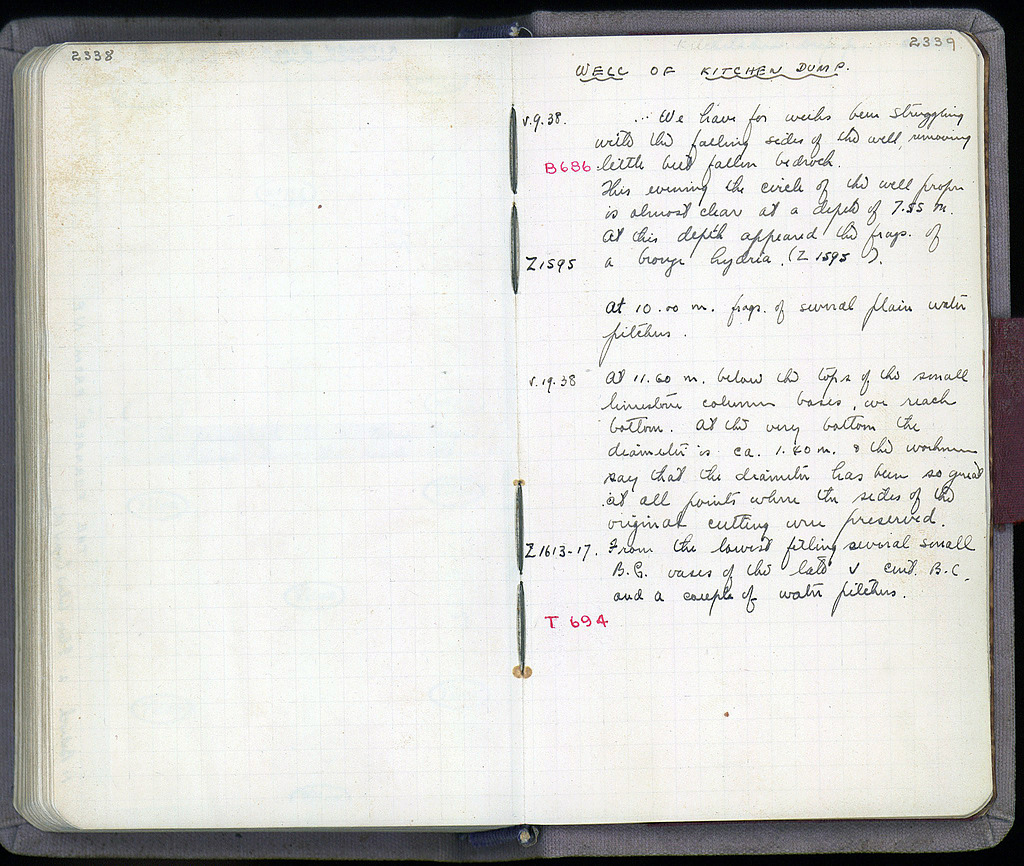 2338
2339
WELL OF KITCHEN DUMP.
V.9.38. ... We have for weeks been struggling
with the falling sides of the well, removing
B686 little but fallen bedrock.
This evening the circle of the well proper
is almost clear at a depth of 7.55 m.
At this depth appeared the frags. of
Z1595 a bronze hydria. (Z 1595 ).
At 10.00 m. frags. of several plain water
pitchers.
V.19.38 At 11.60 m. below the tops of the small
limestone column bases, we reach
bottom. At the very bottom the
diameter is ca. 1.40 m. & the workmen
say that the diameter has been so great
at all points where the sides of the
original cutting were preserved.
Z1613-17. From the lowest filling several small
B.G. vases of the late V cent. B.C.
and a couple of water pitchers.
T 694